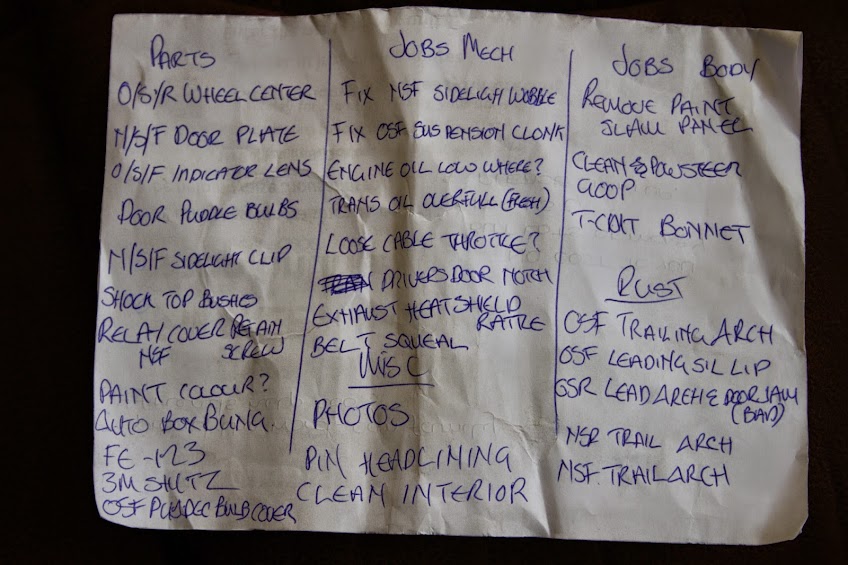 PARTS
O/S/R WHEEL CENTER
N/S/F DOOR PLATE
O/S/F INDICATOR LENS
DOOR PUDDLE BULBS
N/S/F SIDELIGHT CLIP
SHOCK TOP BUSHES
RELAY COVER RETAIN
NSF SCREW
PAINT COLOUR?
AUTO BOX BUNG
FE-123
3M SHUTZ
OSF BULB COVER
JOBS MECH
FIX NSF SIDELIGH WOBBLE
FIX OSF SUSPENSION CLONK
ENGINE OIL LOW WHERE?
TRANS OIL OVERFULL (FRESH)
LOOSE CABLE THROTTLE?
DRIVERS DOOR NOTCH
EXHAUST HEATSHIELD
RATTLE
BELT SQUEAL
MISC
PHOTOS
PIN HEADLINING
CLEAN INTERIOR
JOBS BODY
REMOVE PAINT
SLAM PANEL
CLEAN & POWSTEER
GOOP
T-CUT BONNET
RUST
OSF TRAILING ARCH
OSF LEADING SIL LIP
OSR LEAD ARCH & DOOR JAM
(BAD)
NSR TRAIL ARCH
NSF TRAIL ARCH